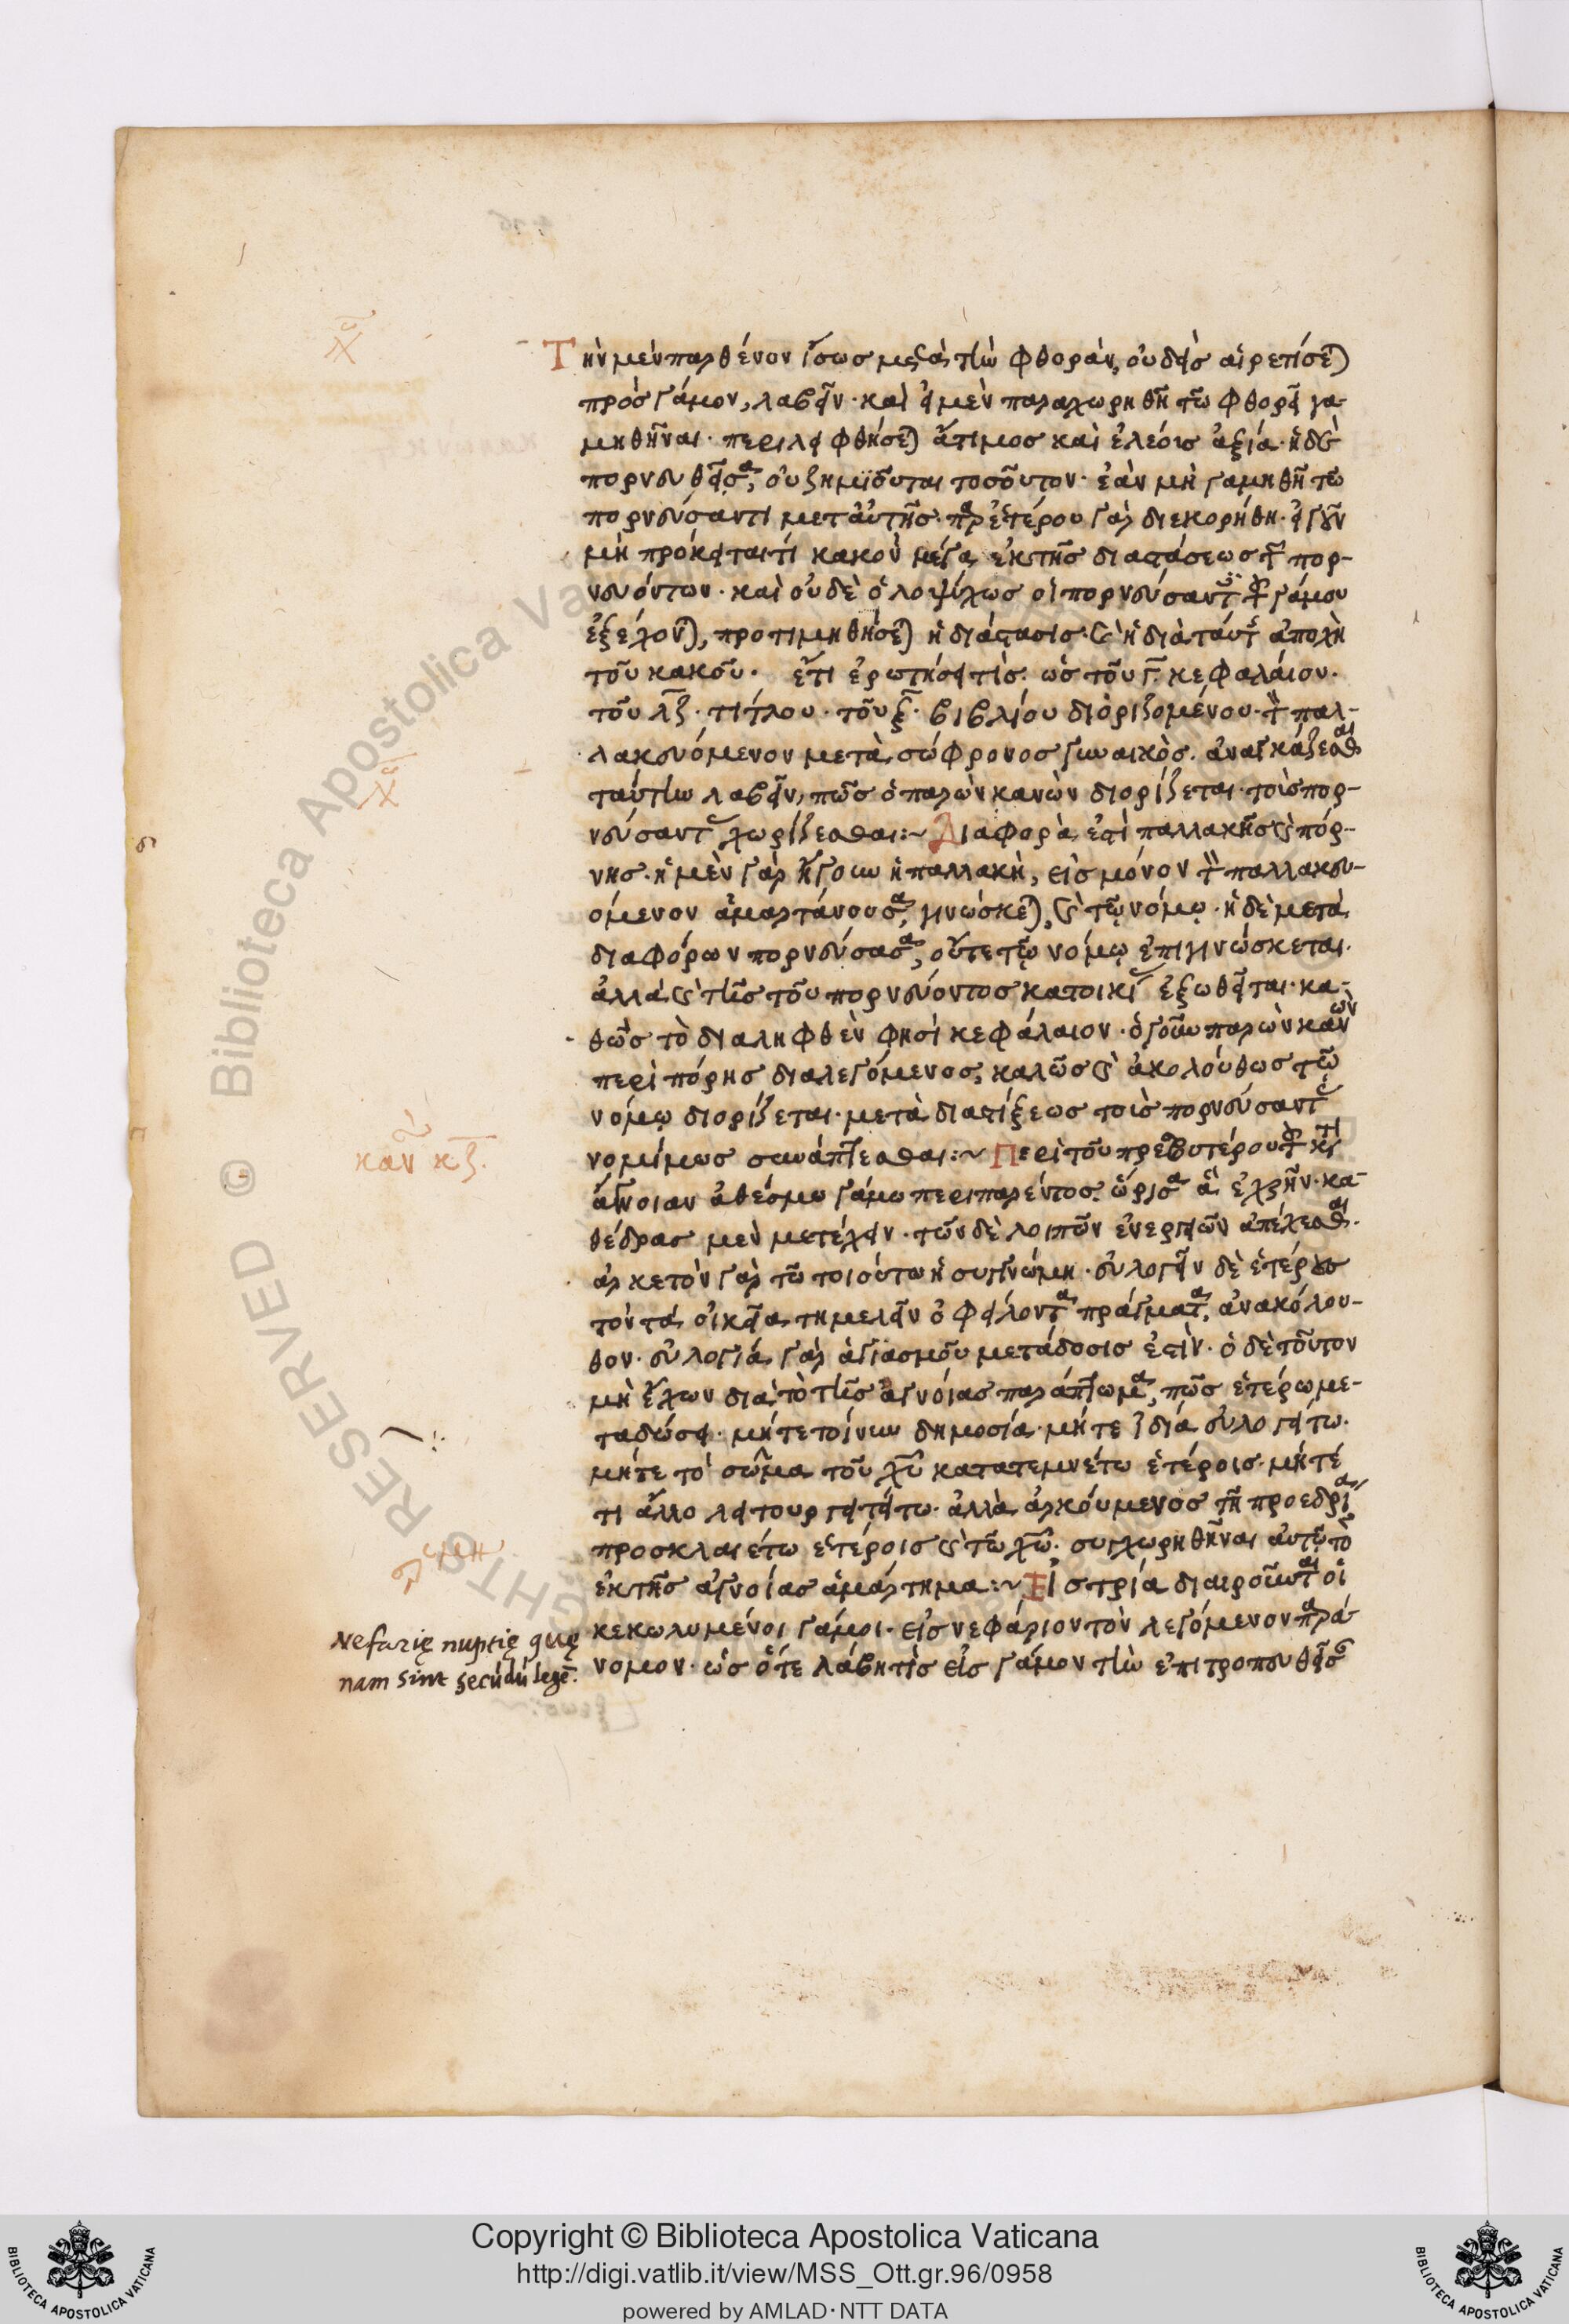 Τὴν μὲν παρθένον ἴσως μετὰ τὴν φθορὰν, οὐδεὶς αἱρετίσε)
πρὸς γάμον, λαβεῖν· καὶ εἰ μὲν παραχωρηθῆ τῶ φθορεῖ γα
μηθῆναι· περιλειφθήσε) ἄτιμος καὶ ἐλέους ἀξία· ἡ δὲ
πορνευθεῖσα, οὐ ζημιοῦται τοσοῦτον· ἐὰν μὴ γαμηθῆ τῶ
πορνεύσαντι μετ αὐτῆς· παρ ἑτέρου γὰρ διεκορήθη· εἰ γοῦν
μὴ πρόκειταί τι κακὸν μέγα ἐκ τῆς διαστάσεως τῶν πορ-
νευόντων· καὶ οὐδὲ ὁλοψύχως οἱ πορνεύσαντες τοῦ γάμου
ἐξέχον), προτιμηθήσε) ἡ διάστασις· καὶ ἡ διὰ ταύτης ἀποχὴ
τοῦ κακοῦ· ἔτι ἐρωτήσει τίς· ὡς τοῦ γ κεφαλαίου·
τοῦ λζ· τίτλου· τοῦ ξ· βιβλίου διοριζομένου· τὸν παλ-
λακευόμενον μετὰ σώφρονος γυναικὸς· ἀναγκάζεσθαι
ταύτην λαβεῖν, πῶς ὁ παρὼν κανὼν διορίζεται τοὺς πορ-
νεύσαντας χωρίζεσθαι:~ Διαφορὰ ἐστὶ παλλακῆς καὶ πόρ-
νης· ἡ μὲν γὰρ ἤγουν ἡ παλλακὴ, εἰς μόνον τὸν παλλακευ-
όμενον ἁμαρτάνουσα, γινώσκε), καὶ τῷ νόμῳ· ἡ δὲ μετὰ
διαφόρων πορνεύσασα, οὔτε τῷ νόμῳ ἐπιγινώσκεται·
ἀλλὰ καὶ τῆς τοῦ πορνεύοντος κατοικίας ἐξωθεῖται· κα-
θὼς τὸ διαληφθὲν φησὶ κεφάλαιον· ὁ γοῦν παρὼν κανὼν
περὶ πόρνης διαλεγόμενος, καλῶς καὶ ἀκολούθως τῷ
νόμῳ διορίζεται· μετὰ διαστίξεως τοὺς πορνεύσαντας
νομίμως συνάπτεσθαι:~ Περὶ τοῦ πρεσβυτέρου τοῦ κατὰ
ἄγνοιαν ἀθέσμω γάμω περιπαρέντος· ὥρισα ἃ ἐχρῆν· κα-
θέδρας μὲν μετέχειν· τῶν δὲ λοιπῶν ἐνεργειῶν ἀπέχεσθαι·
ἀρκετὸν γὰρ τῶ τοιούτω ἡ συγγνώμη· εὐλογεῖν δὲ ἑτέρους
τὸν τὰ οἰκεῖα τημελεῖν ὀφείλοντα πράγματα, ἀνακόλου-
θον· εὐλογία γὰρ ἁγιασμοῦ μετάδοσις ἐστὶν· ὁ δὲ τοῦτον
μὴ ἔχων διὰ τὸ τῆς ἀγνοίας παράπτωμα, πῶς ἑτέρω με-
ταδώσει· μήτε τοίνυν δημοσία· μήτε ἰδία εὐλογείτω·
μήτε τὸ σῶμα τοῦ χυ κατατεμνέτω ἑτέροις· μήτέ
τι ἄλλο λειτουργείτω· ἀλλὰ ἀρκούμενος τῇ προεδρία
προσκλαιέτω ἑτέροις καὶ τῶ χω· συγχωρηθῆναι αὐτῷ τὸ
ἐκ τῆς ἀγνοίας ἁμάρτημα:~ Εἰς τρία διαιροῦνται οἱ
κεκωλυμένοι γάμοι· εἰς νεφάριον τὸν λεγόμενον παρά-
νομον· ὡς ὅτε λάβη τὶς εἰς γάμον τὴν ἐπιτροπευθεῖσαν
καν κζ·
Nefarię nuptię quę
nam sint secūdū legē·
Copyright © Biblioteca Apostolica Vaticana
http://digi.vatlib.it/view/MSS_Ott.gr.96/0958
powered by AMLAD·NTT DATA
BIBLIOTECA APOSTOLICA VATICANA
BIBLIOTECA APOSTOLICA VATICANA
RIGHTS RESERVED © Biblioteca Apostolica Va